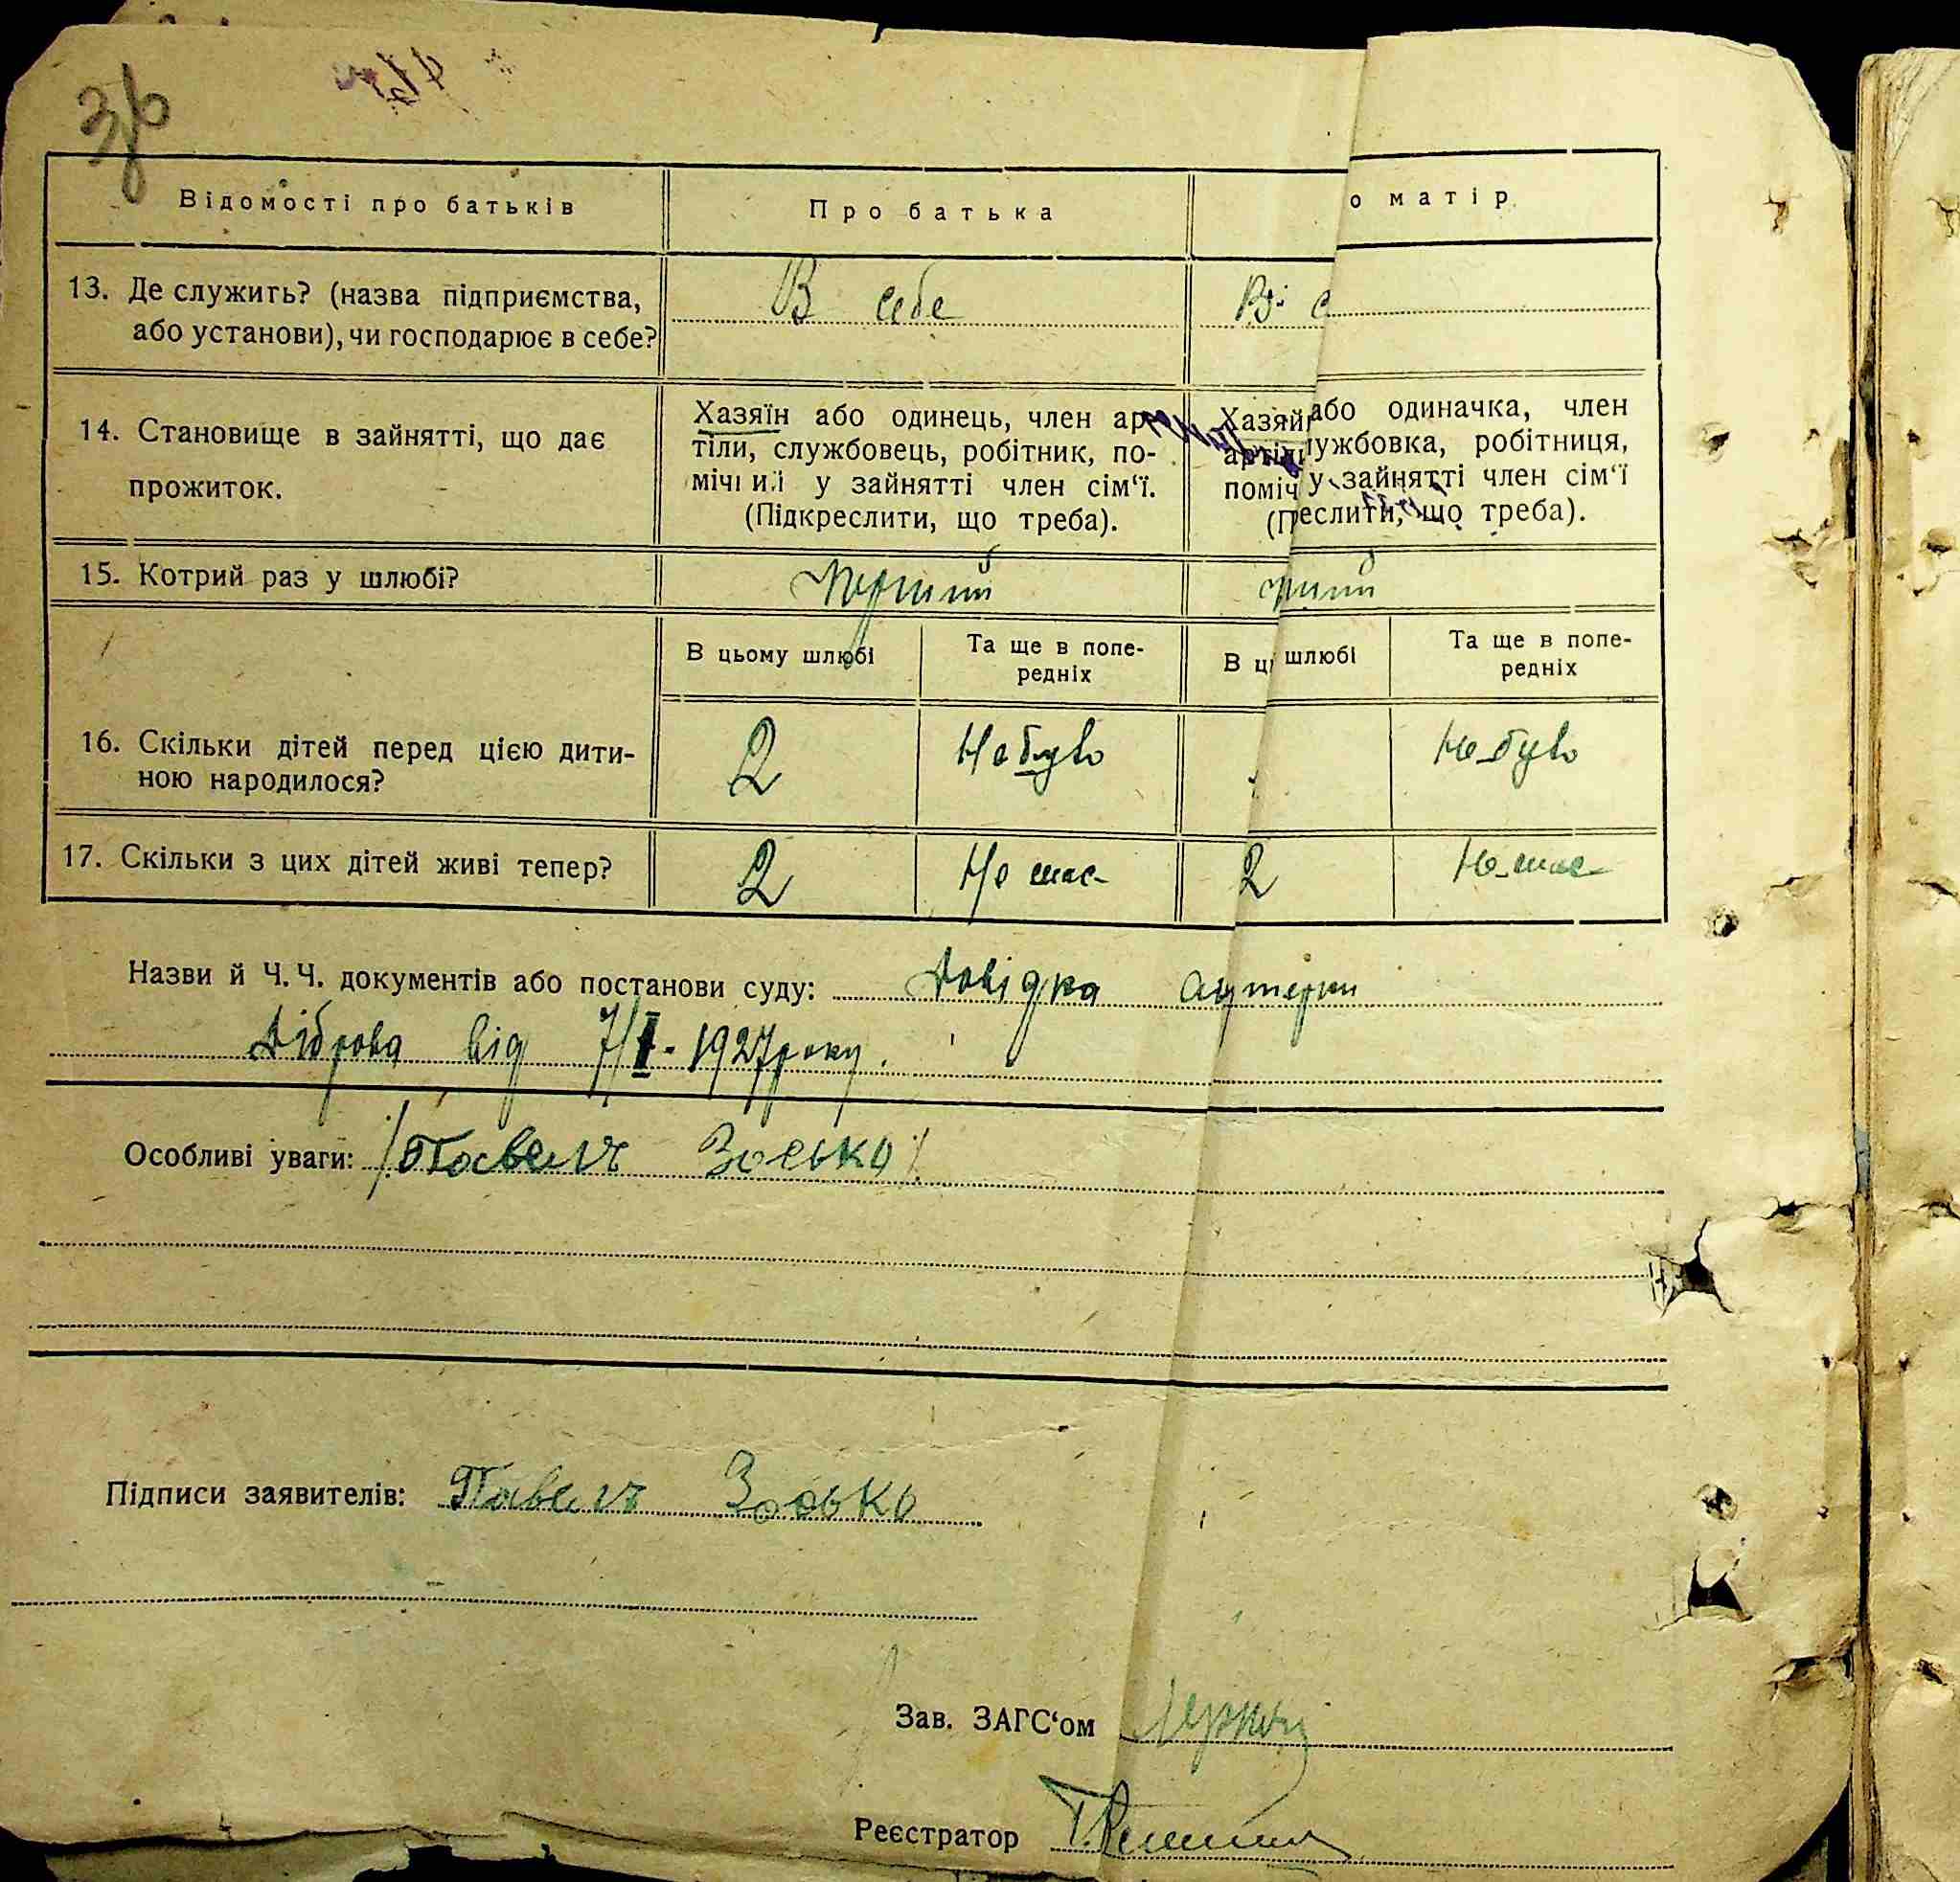 Відомості про батьків
Про батька
о матір
13. Де служить? (назва підприємства,
або установи), чи господарює в себе?
В себе
14. Становище в зайнятті, що дає
прожиток.
Хазяїн або одинець, член ар-
тіли, службовець, робітник, по-
мічний у зайнятті член сім‘ї.
(Підкреслити, що треба).
Хазяй або одиначка, член
артіли ужбовка, робітниця,
поміч у зайнятті член сім‘ї
(П еслити, що треба).
15. Котрий раз у шлюбі?
Перший
рший
В цьому шлюбі
Та ще в попе-
редніх
В ц шлюбі
Та ще в попе-
редніх
16. Скільки дітей перед цією дити-
ною народилося?
2
Не було
Не було
17. Скільки з цих дітей живі тепер?
2
Не має
2
Не має
Назви й Ч. Ч. документів або постанови суду: Довідка акушерки
Діброва від 7/I - 1927 року.
Особливі уваги: /Павелъ Зосько/
Підписи заявителів: Павелъ Зосько
Зав. ЗАГС‘ом
Реєстратор